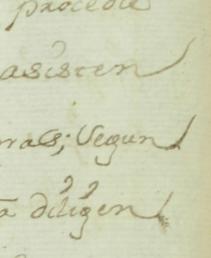 procedie
asisten
rras; Segun
a diligen